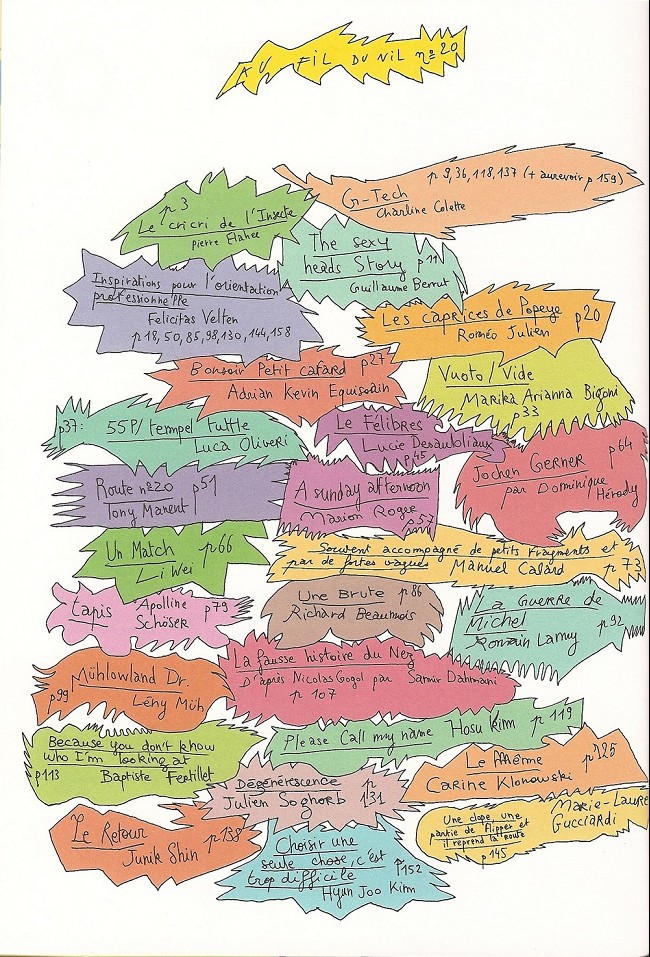 AU FIL DU NIL nº20
p 3
Le cricri de l'Insecte
Pierre Elahee
p 9,36,118,137 (+ aurevoir p 159)
G-Tech
Charline Colette
The sexy
heads Story p11
Guillaume Berrut
Inspirations pour l'orientation
professionnelle
Felicitas Velten
p 18, 50, 85, 98, 130, 144, 158
Les caprices de Popeye p20
Roméo Julien
Bonsoir Petit cafard p27
Adrian Kevin Equisoain
Vuoto / Vide
Marika Arianna Bigoni
p33
p37: 55P/ tempel tuttle
Luca Oliveri
Le Félibres
Lucie Desaubliaux
p45
Jochen Gerner p64
par Dominique
Hérody
Route nº20 p51
Tony Manent
A sunday afternoon
Marion Roger
p57
Un Match p66
Li Wei
Souvent accompagné de petits fragments et
par de fortes vagues Manuel Calard p 73
Lapis Apolline p79
Schöser
Une Brute p86
Richard Beaumois
La Guerre de
Michel p 92
Romain Lamy
Mühlowland Dr.
p99 Lény Müh
La fausse histoire du Nez
D'après Nicolas Gogol par Samir Dahmani
p 107
Please Call my name Hosu Kim p 119
Because you don't know
who I'm looking at
p113 Baptiste Fertillet
Le Même p125
Carine Klonowski
Dégénérescence p
Julien Soghorb 131
Le Retour p138
Junik Shin
Marie-Laure
Gucciardi
Une clope, une
partie de flipper et
il reprend la route
p145
Choisir une
seule chose, c'est p152
trop difficile
Hyun Joo Kim